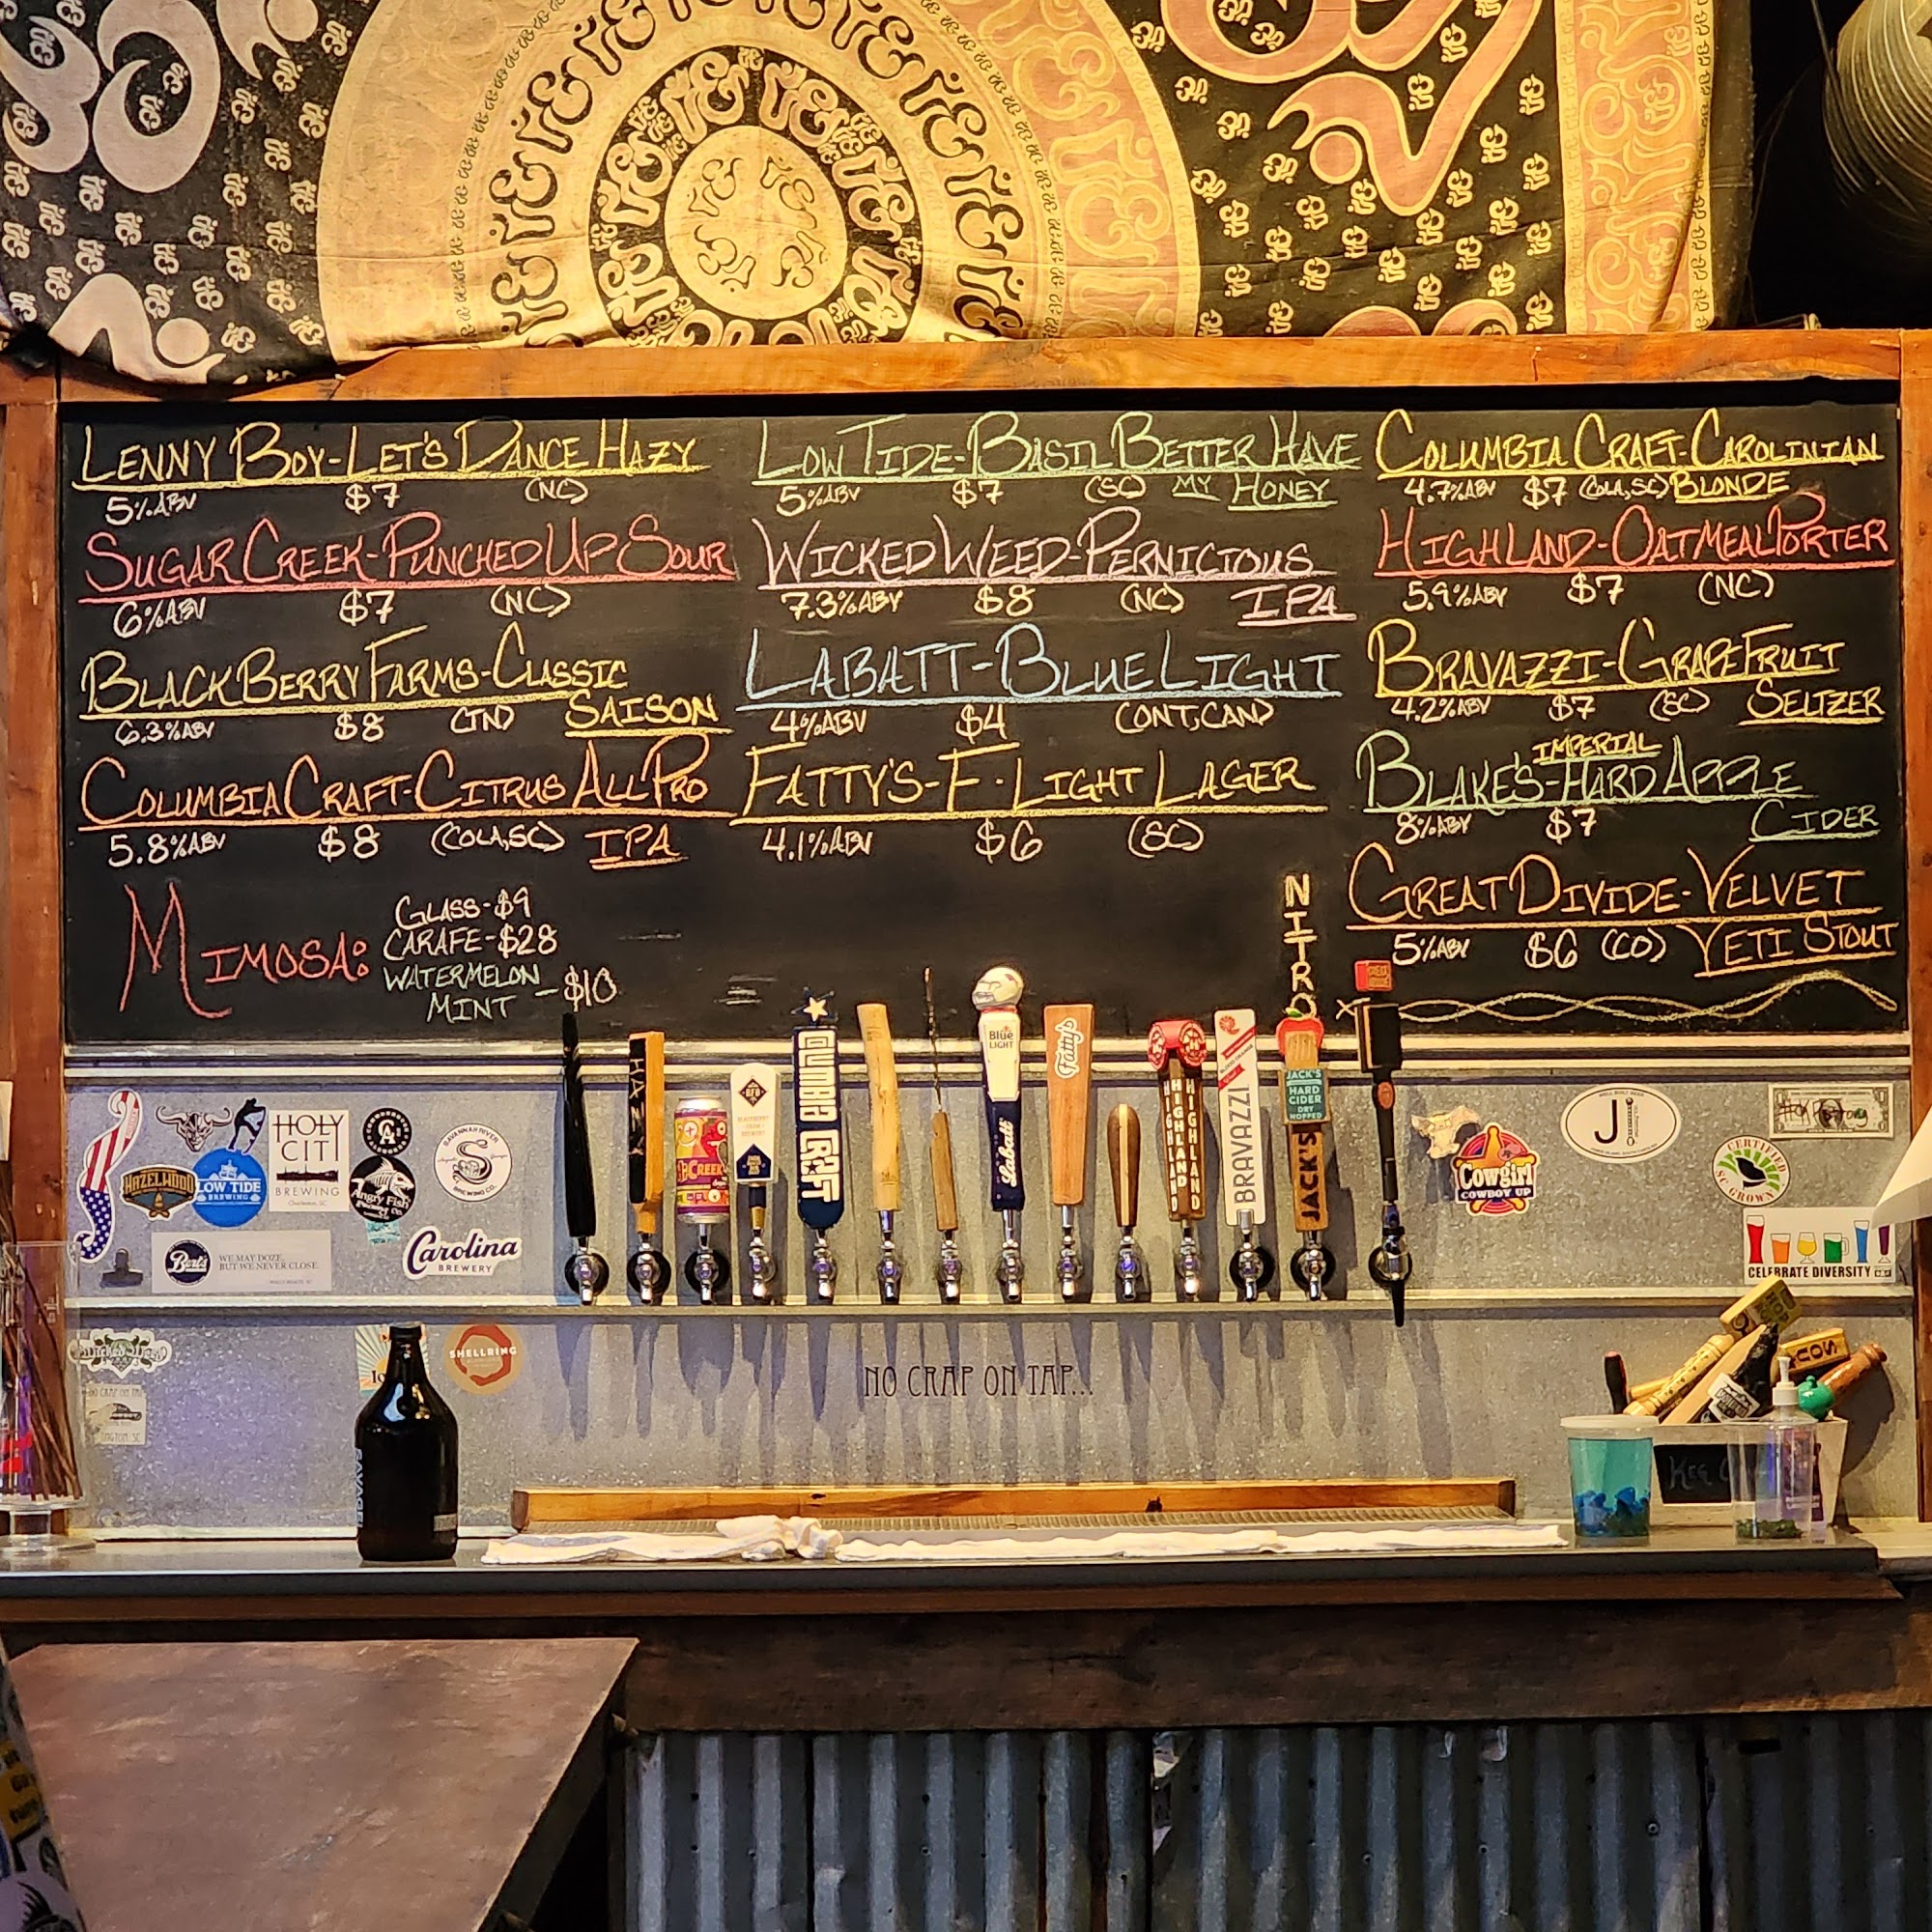 LENNY BOY-LET'S DANCE HAZY
5%ABV $7 (NC)
SUGAR CREEK-PUNCHED UP SOUR
6%ABV $7 (NC)
BLACKBERRY FARMS-CLASSIC
6.3%ABV $8 (TN) SAISON
COLUMBIA CRAFT-CITRUS ALL PRO
5.8%ABV $8 (COLA,SC) IPA
MIMOSA:
GLASS-$9
CARAFE-$28
WATERMELON
MINT -$10
LOW TIDE-BASIL BETTER HAVE
5%ABV $7 (SC) MY HONEY
WICKED WEED-PERNICIOUS
7.3%ABV $8 (NC) IPA
LABATT-BLUE LIGHT
4%ABV $4 (ONT,CAN)
FATTY'S-F·LIGHT LAGER
4.1%ABV $6 (SC)
COLUMBIA CRAFT-CAROLINIAN
4.7%ABV $7 (COLA,SC) BLONDE
HIGHLAND-OATMEAL PORTER
5.9%ABV $7 (NC)
BRAVAZZI-GRAPEFRUIT
4.2%ABV $7 (SC) SELTZER
IMPERIAL
BLAKE'S-HARD APPLE
8%ABV $7 CIDER
NITRO
GREAT DIVIDE-VELVET
5%ABV $6 (CO) YETI STOUT
HAZY
CREEK
CRAFT
Blue
LIGHT
Labatt
Fatty's
HIGHLAND
HIGHLAND
HIGHLAND
BRAVAZZI
JACK'S
HARD
CIDER
DRY
HOPPED
JACK'S
HOLY
CITY
BREWING
HAZELWOOD
LOW TIDE
BREWING
CA
Angry Fish
SAVANNAH RIVER
S
BREWING CO.
Bert's
WE MAY DOZE,
BUT WE NEVER CLOSE.
Carolina
BREWERY
Cowgirl
COWBOY UP
J
CERTIFIED
SC GROWN
CELEBRATE DIVERSITY
SHELLRING
NO CRAP ON TAP...
SOU